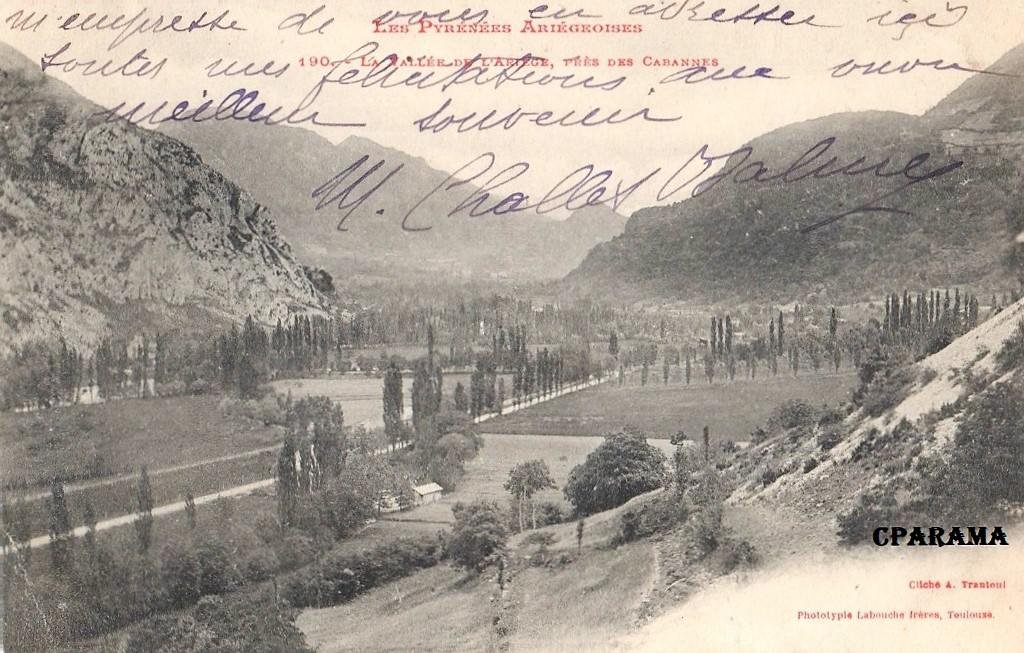 m'empresse de vous en adresser ici
LES PYRÉNÉES ARIÉGEOISES
190. - LA VALLÉE DE L'ARIÈGE, PRÈS DES CABANNES
toutes mes félicitations que mon
meilleur souvenir
M. Challes
CPARAMA
Cliché A. Trantoul
Phototypie Labouche frères, Toulouse.